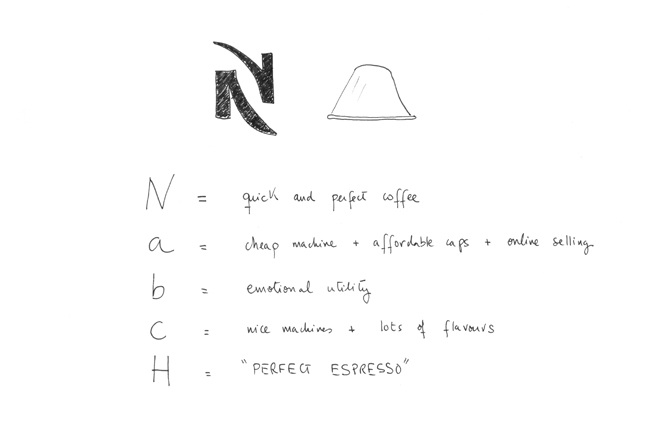 N
N = quick and perfect coffee
a = cheap machine + affordable caps + online selling
b = emotional utility
c = nice machines + lots of flavours
H = "PERFECT ESPRESSO"